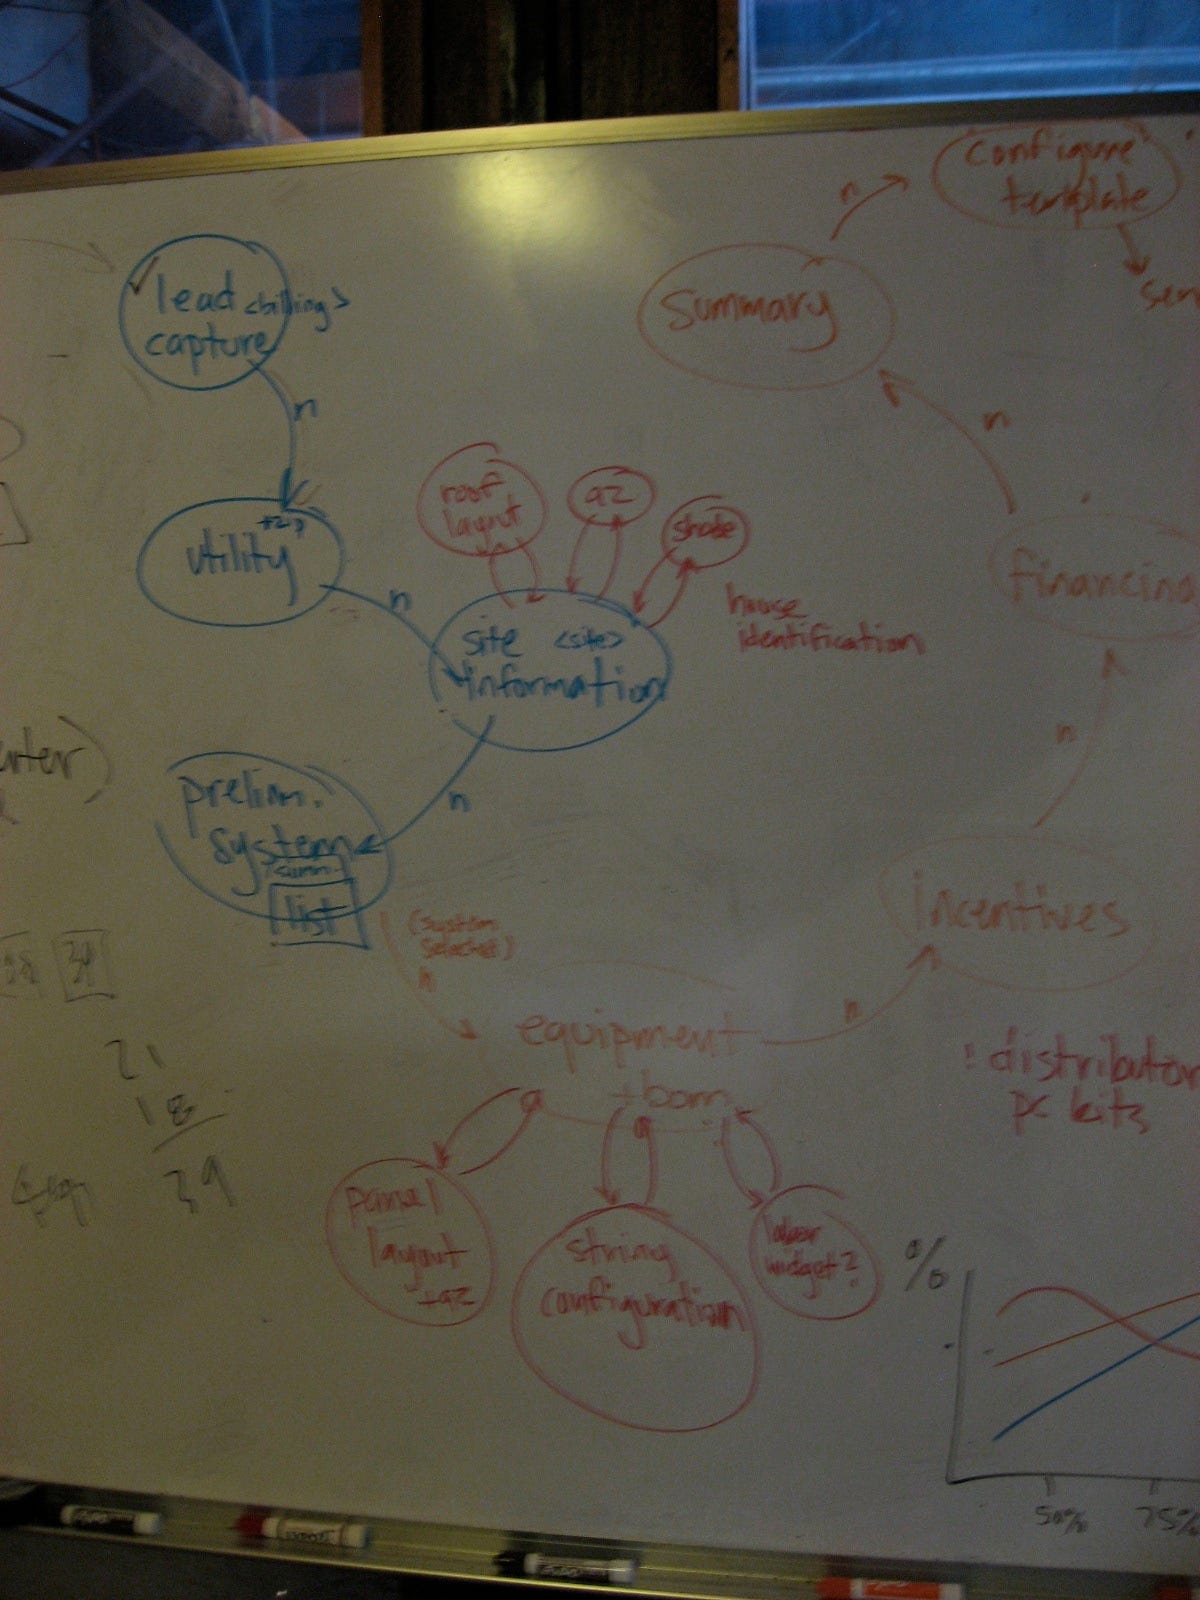 configure
template
n
summary
lead <billing>
capture
n
n
roof
layout
az
shade
+zip
utility
n
house
identification
site <site>
information
financing
n
prelim.
system
summ.
list
n
(system
selected)
n
incentives
equipment
+bom
n
! distributor
pc kits
34
21
18
39
panel
layout
+az
string
configuration
labor
widget?
%
50%
75%